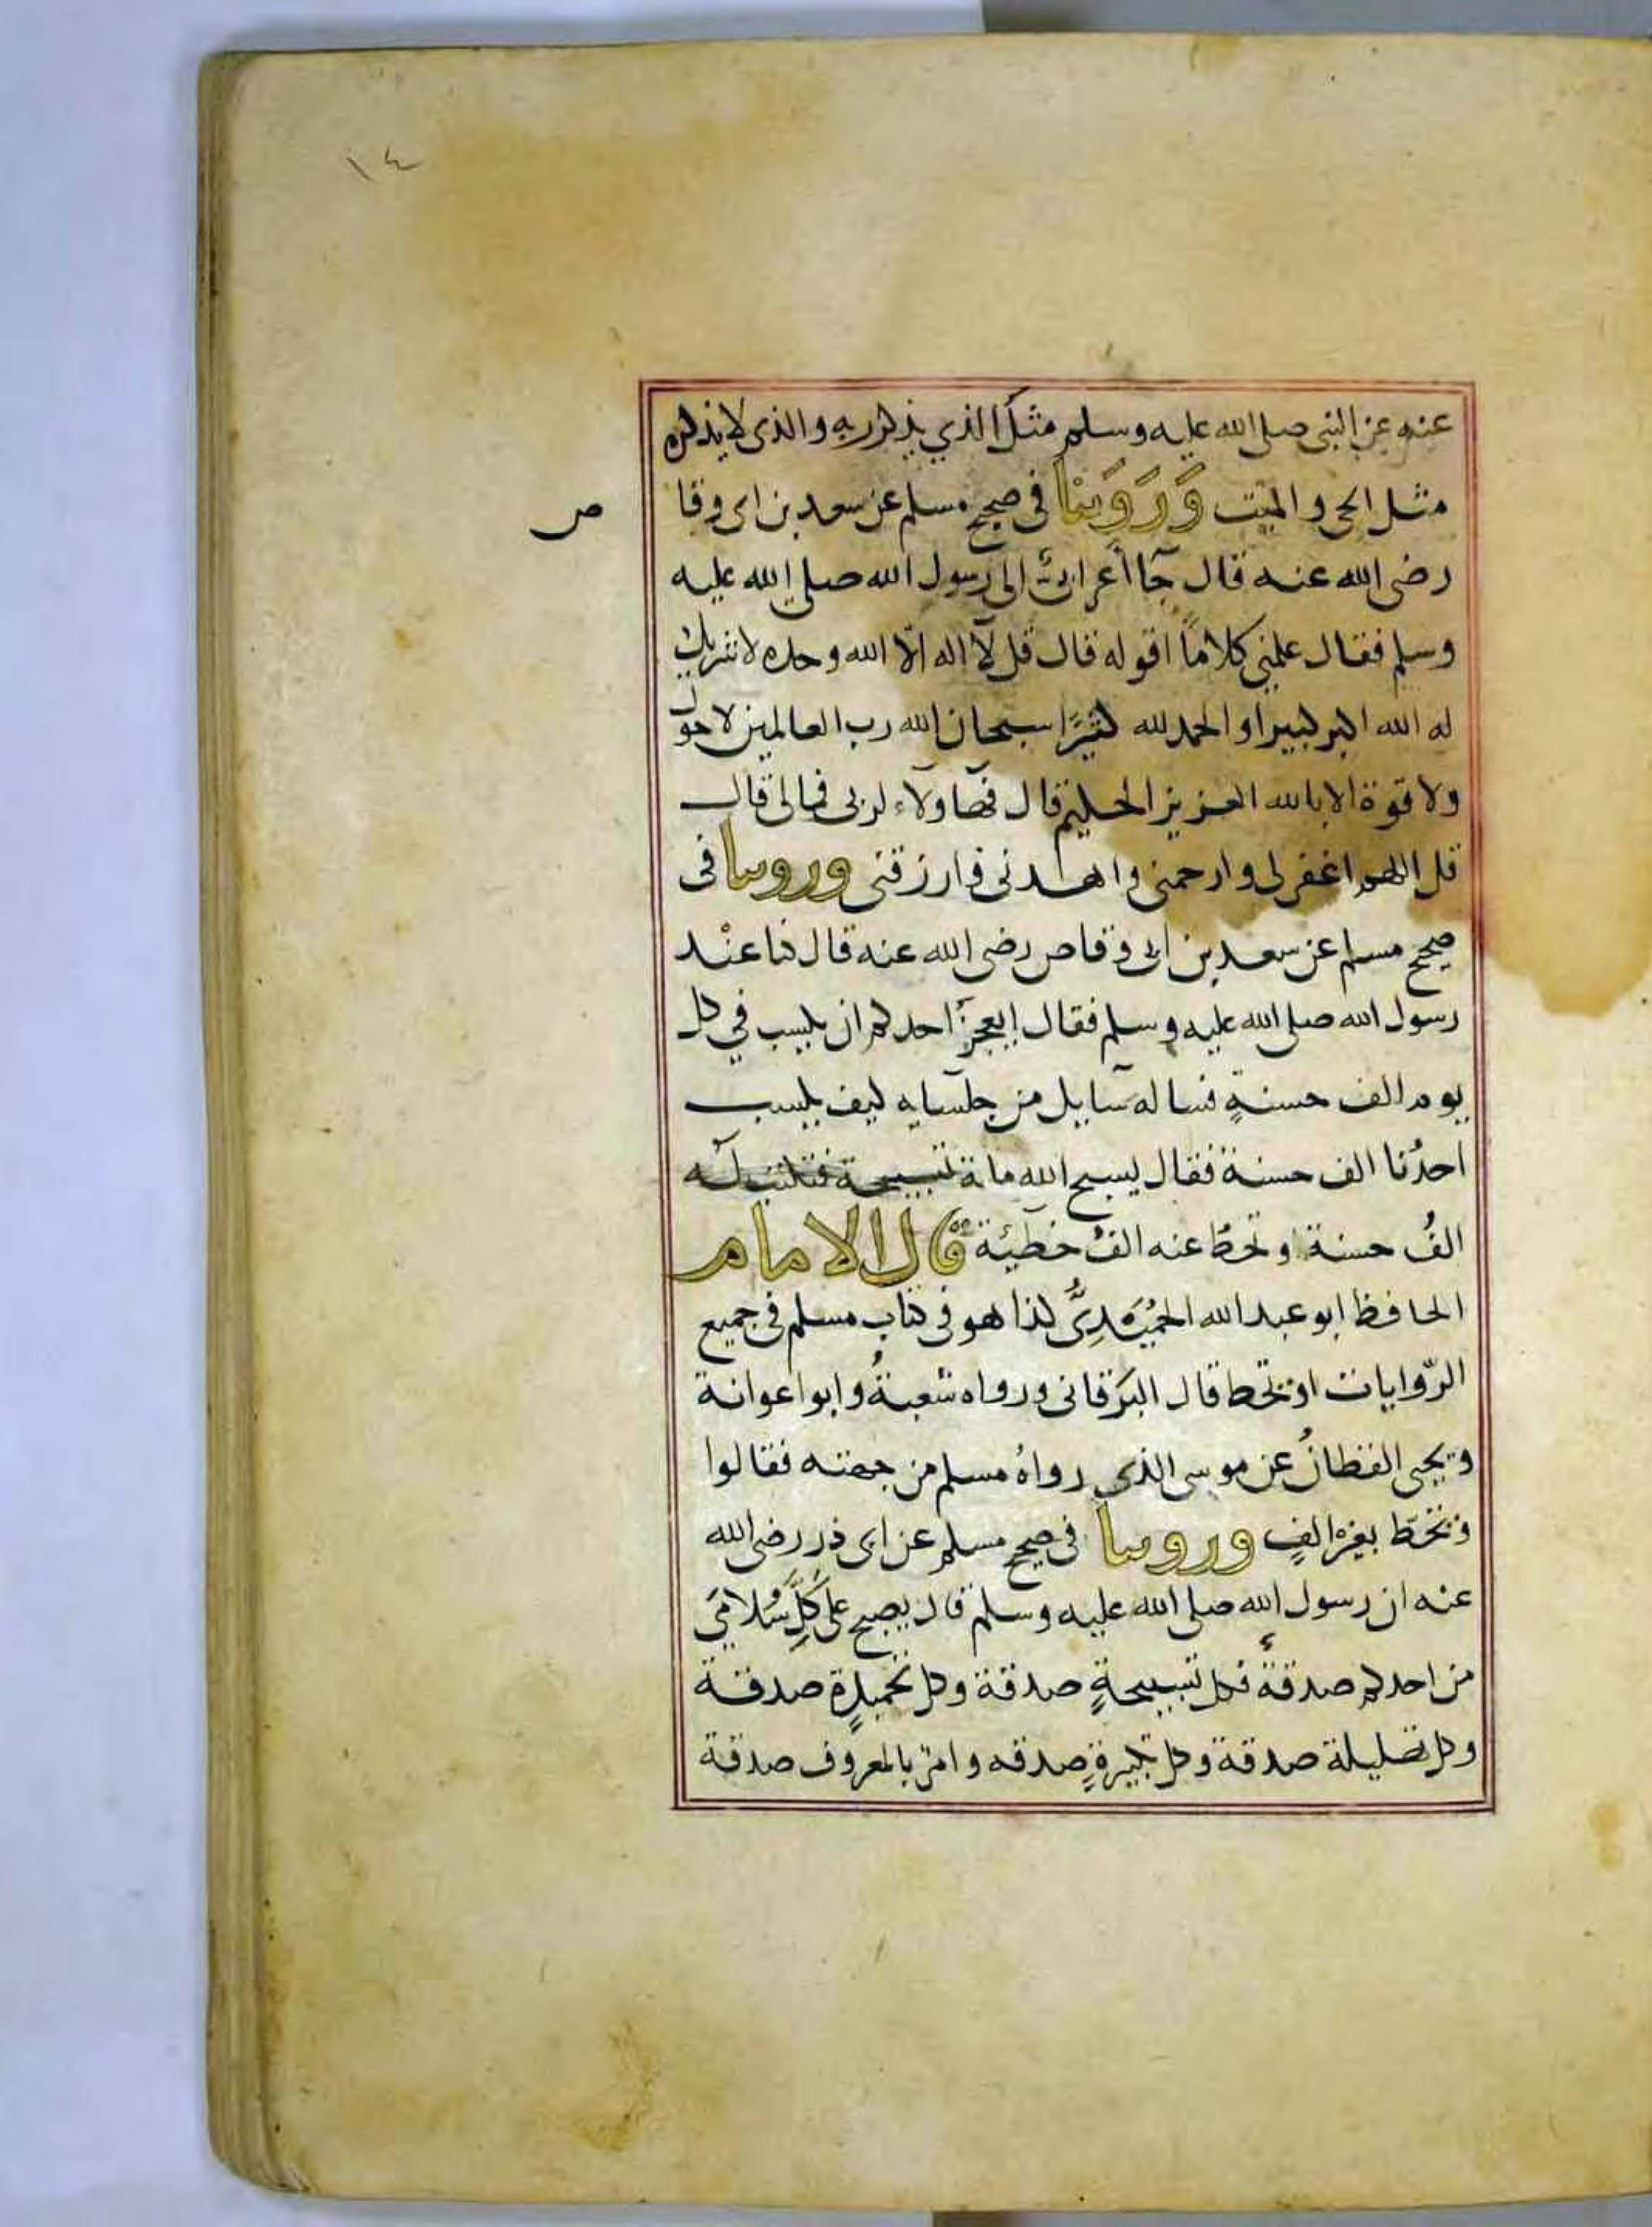 ١٤
عنه عن النبى صلى الله عليه وسلم مثل الذي يذكر ربه والذى لا يذكره
مثل الحى والميت وَرَوَينا فى صحيح مسلم عن سعد بن ابى وقا
ص
رضى الله عنه قال جآ أعرابىٌ الى رسول الله صلى الله عليه
وسلم فقال علمنى كلامًا اقوله قال قل لآ اله الّا الله وحده لا شريك
له الله اكبر كبيرا والحمد لله كثيرًا سبحان الله رب العالمين لا حول
ولا قوة الا بالله العزيز الحكيم قال فهاولآء لربى فما لى قال
قل اللهم اغفر لى وارحمنى واهدنى وارزقنى وروينا فى
صحيح مسلم عن سعد بن ابى وقاص رضى الله عنه قال كنا عنْد
رسول الله صلى الله عليه وسلم فقال ايعجزُ احدكم ان يكسب في كل
يوم الف حسنةٍ فساله سآيل من جلسآيه كيف يكسب
احدُنا الف حسنة فقال يسبح الله ماية تسبيحة فتكتب له
الفُ حسنة او تحطّ عنه الفُ خطيئة قال الامام
الحافظ ابو عبد الله الحُمَيْدِىُّ كذا هو فى كتاب مسلم فى جميع
الرّوايات او تحط قال البَرقانى ورواه شعبةُ وابوا عوانة
ويحيى القطانُ عن موسى الذى رواهُ مسلم من جهته فقالوا
وتحطّ بغيْر الفٍ وروينا فى صحيح مسلم عن ابى ذر رضى الله
عنه ان رسول الله صلى الله عليه وسلم قال يصبح على كلِّ سُلامَى
من احدكم صدقةٌ فكل تسبيحةٍ صدقة وكل تحميدةٍ صدقة
وكل تهليلة صدقة وكل تكبيرةٍ صدقه وامرٌ بالمعروف صدقة